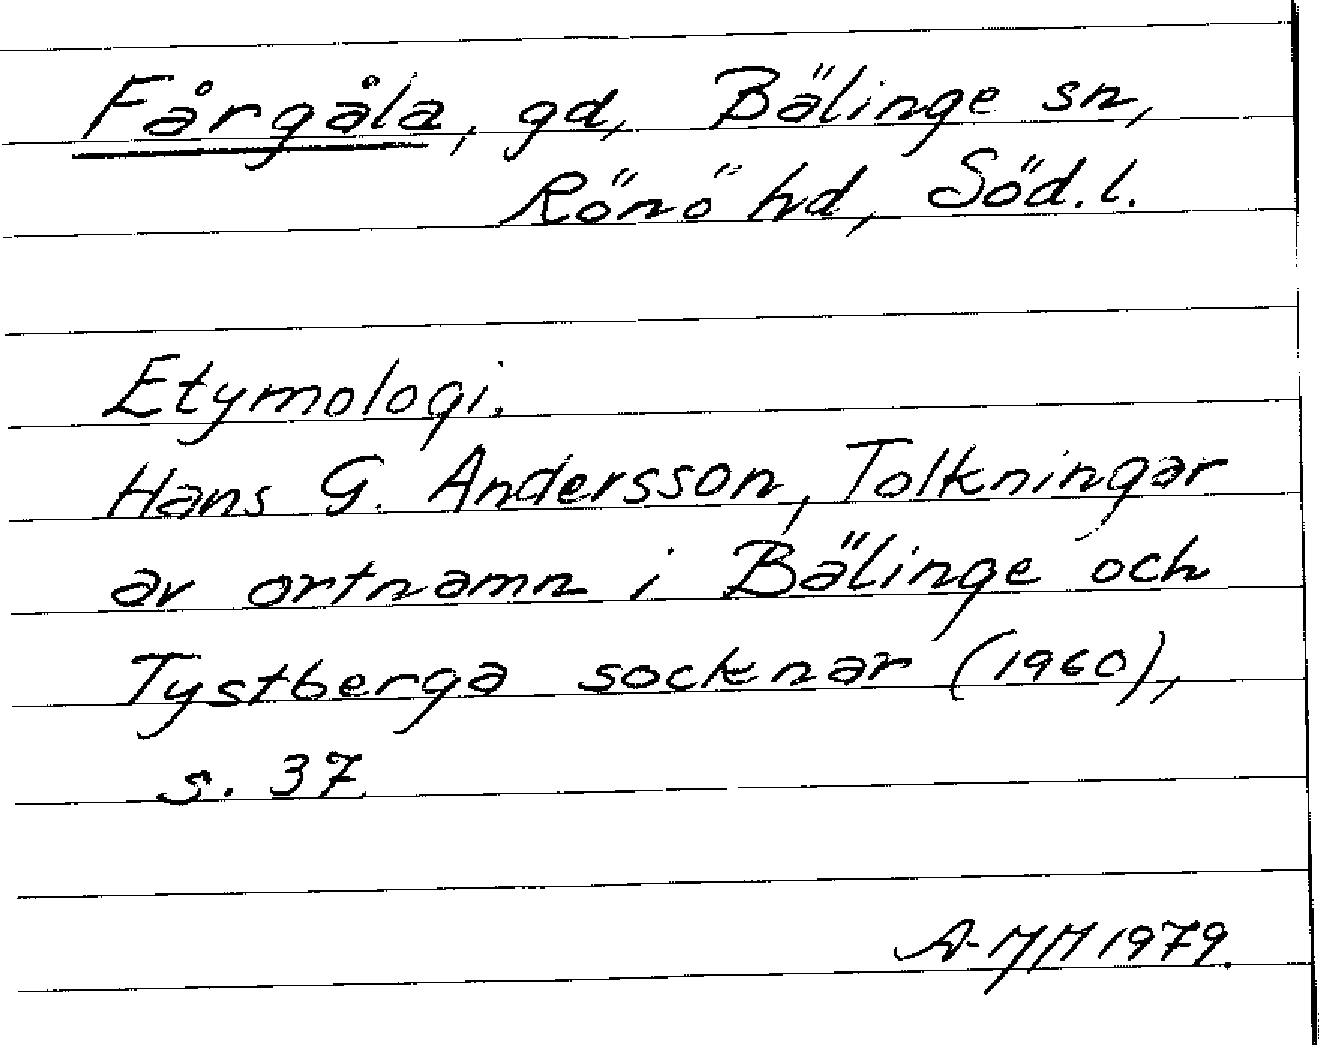 Fårgåla, gd, Bälinge sn,
Rönö hd, Söd.l.
Etymologi.
Hans G. Andersson, Tolkningar
av ortnamn i Bälinge och
Tystberga socknar (1960),
s. 37
1979.